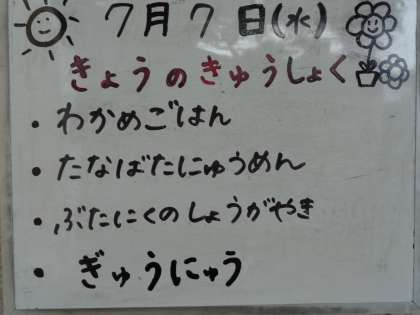 7月7日(水)
きょうのきゅうしょく
・わかめごはん
・たなばたにゅうめん
・ぶたにくのしょうがやき
・ぎゅうにゅう